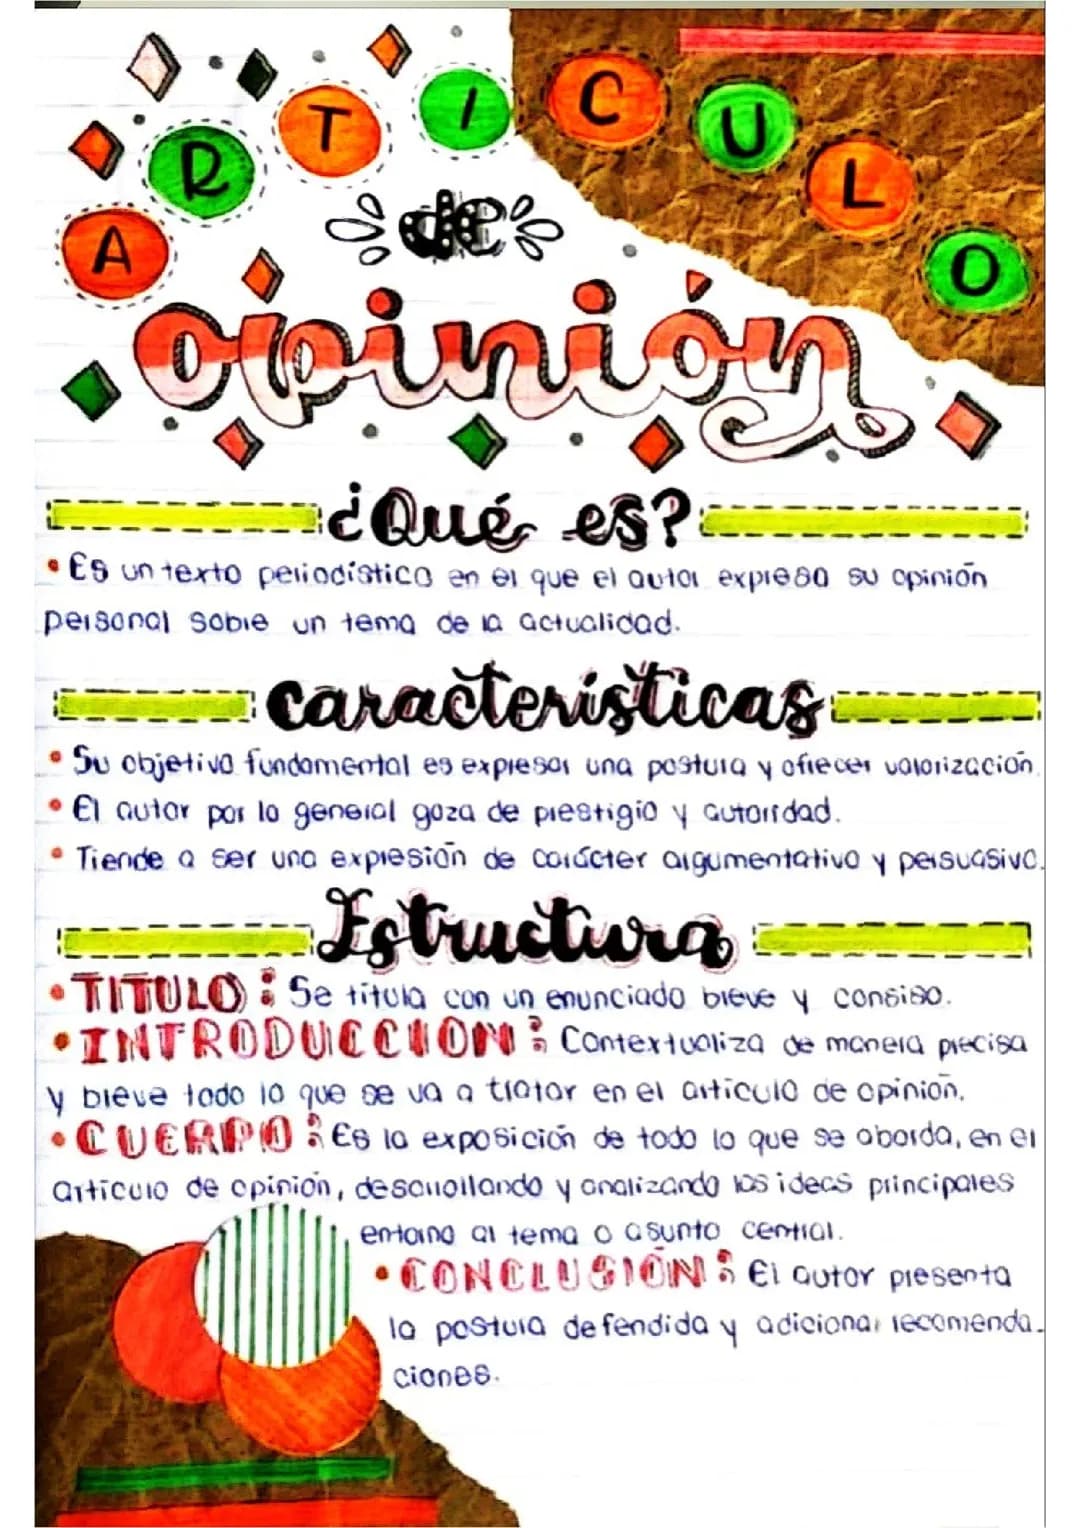 ARTICULO
de
opinión
¿Qué es?
• Es un texto periodístico en el que el autor expresa su opinión
personal sobre un tema de la actualidad.
características
• Su objetivo fundamental es expresar una postura y ofrecer valorización.
• El autor por lo general goza de prestigio y autoridad.
• Tiende a ser una expresión de carácter argumentativo y persuasivo.
Estructura
• TITULO: Se titula con un enunciado breve y consiso.
• INTRODUCCION: Contextualiza de manera precisa
y breve todo lo que se va a tratar en el articulo de opinión.
• CUERPO: Es la exposición de todo lo que se aborda, en el
articulo de opinión, desarrollando y analizando los ideas principales
entorno al tema o asunto central.
• CONCLUSIÓN: El autor presenta
la postura defendida y adicionar recomenda-
ciones.